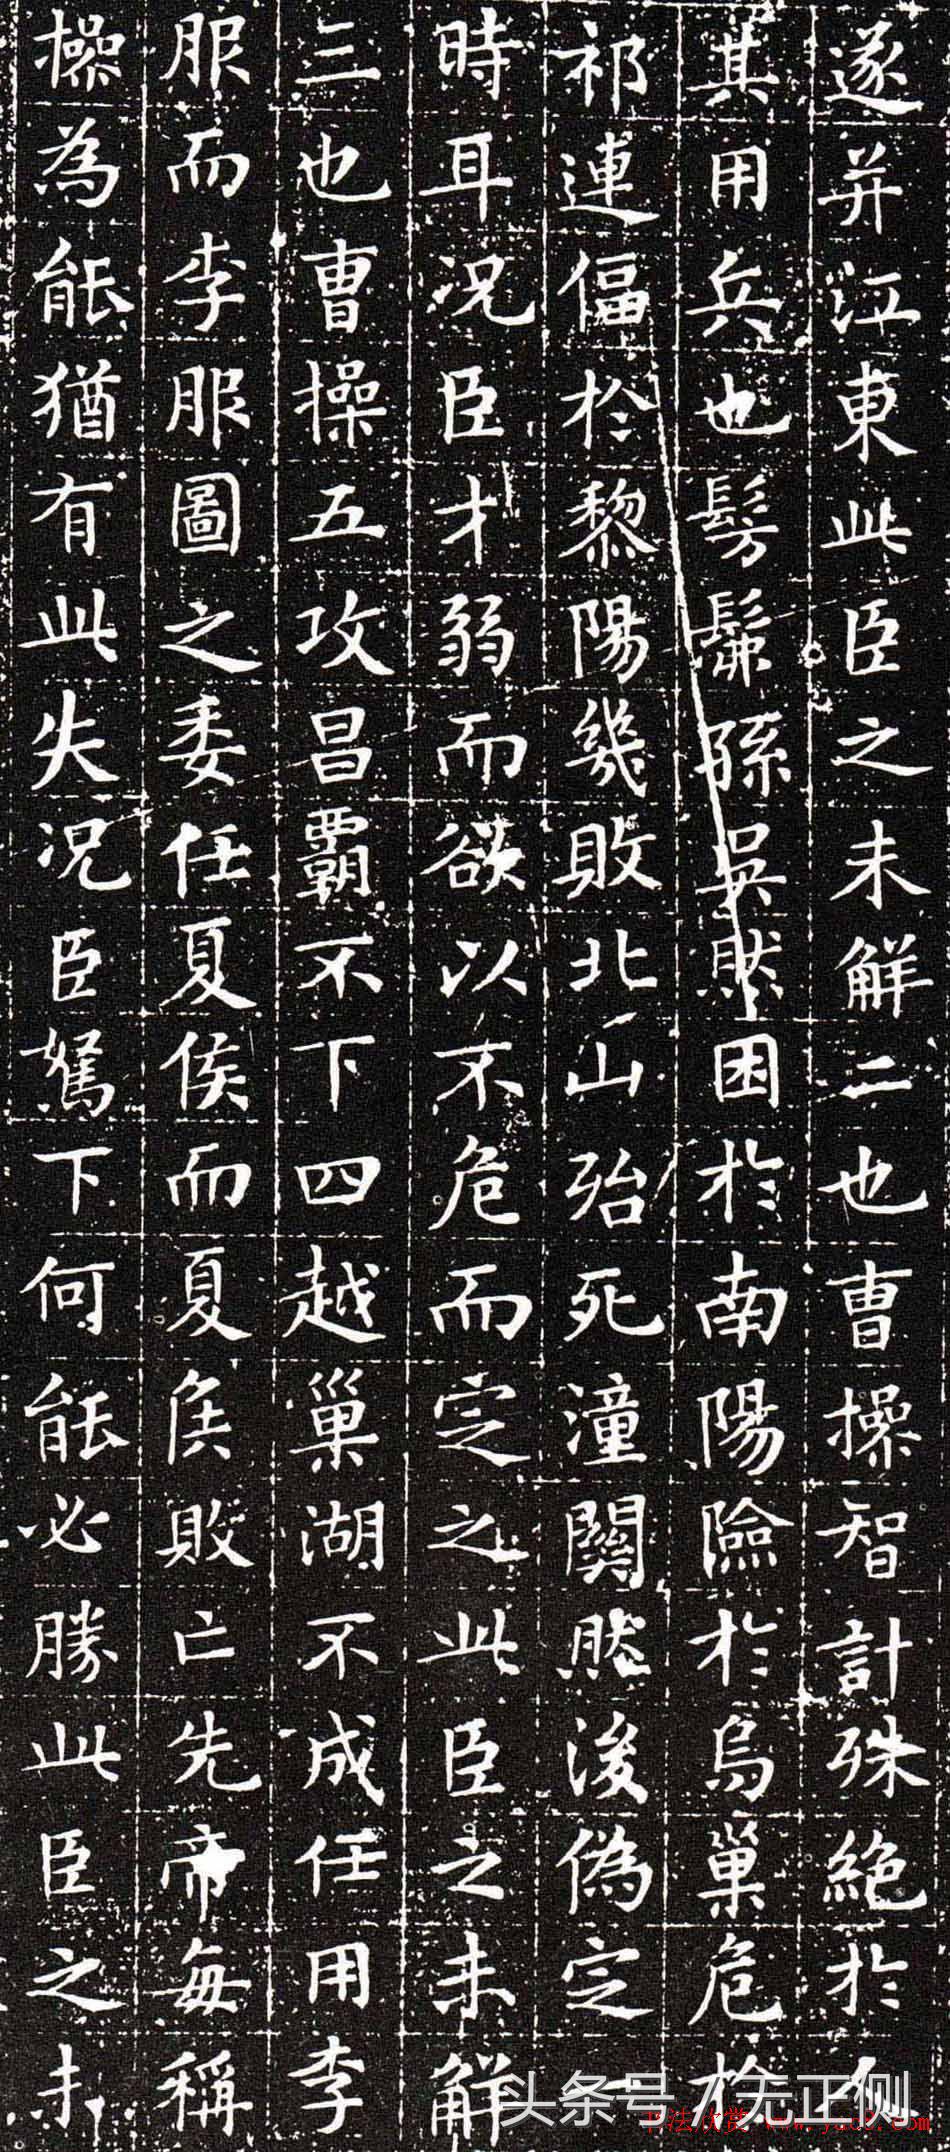 遂并江東此臣之未解二也曹操智計殊絕於人
其用兵也髣髴孫吳然困於南陽險於烏巢危於
祁連偪於黎陽幾敗北山殆死潼關然後偽定一
時耳況臣才弱而欲以不危而定之此臣之未解
三也曹操五攻昌霸不下四越巢湖不成任用李
服而李服圖之委任夏侯而夏侯敗亡先帝每稱
操為能猶有此失況臣駑下何能必勝此臣之未
头条号/无正侧
书法欣赏